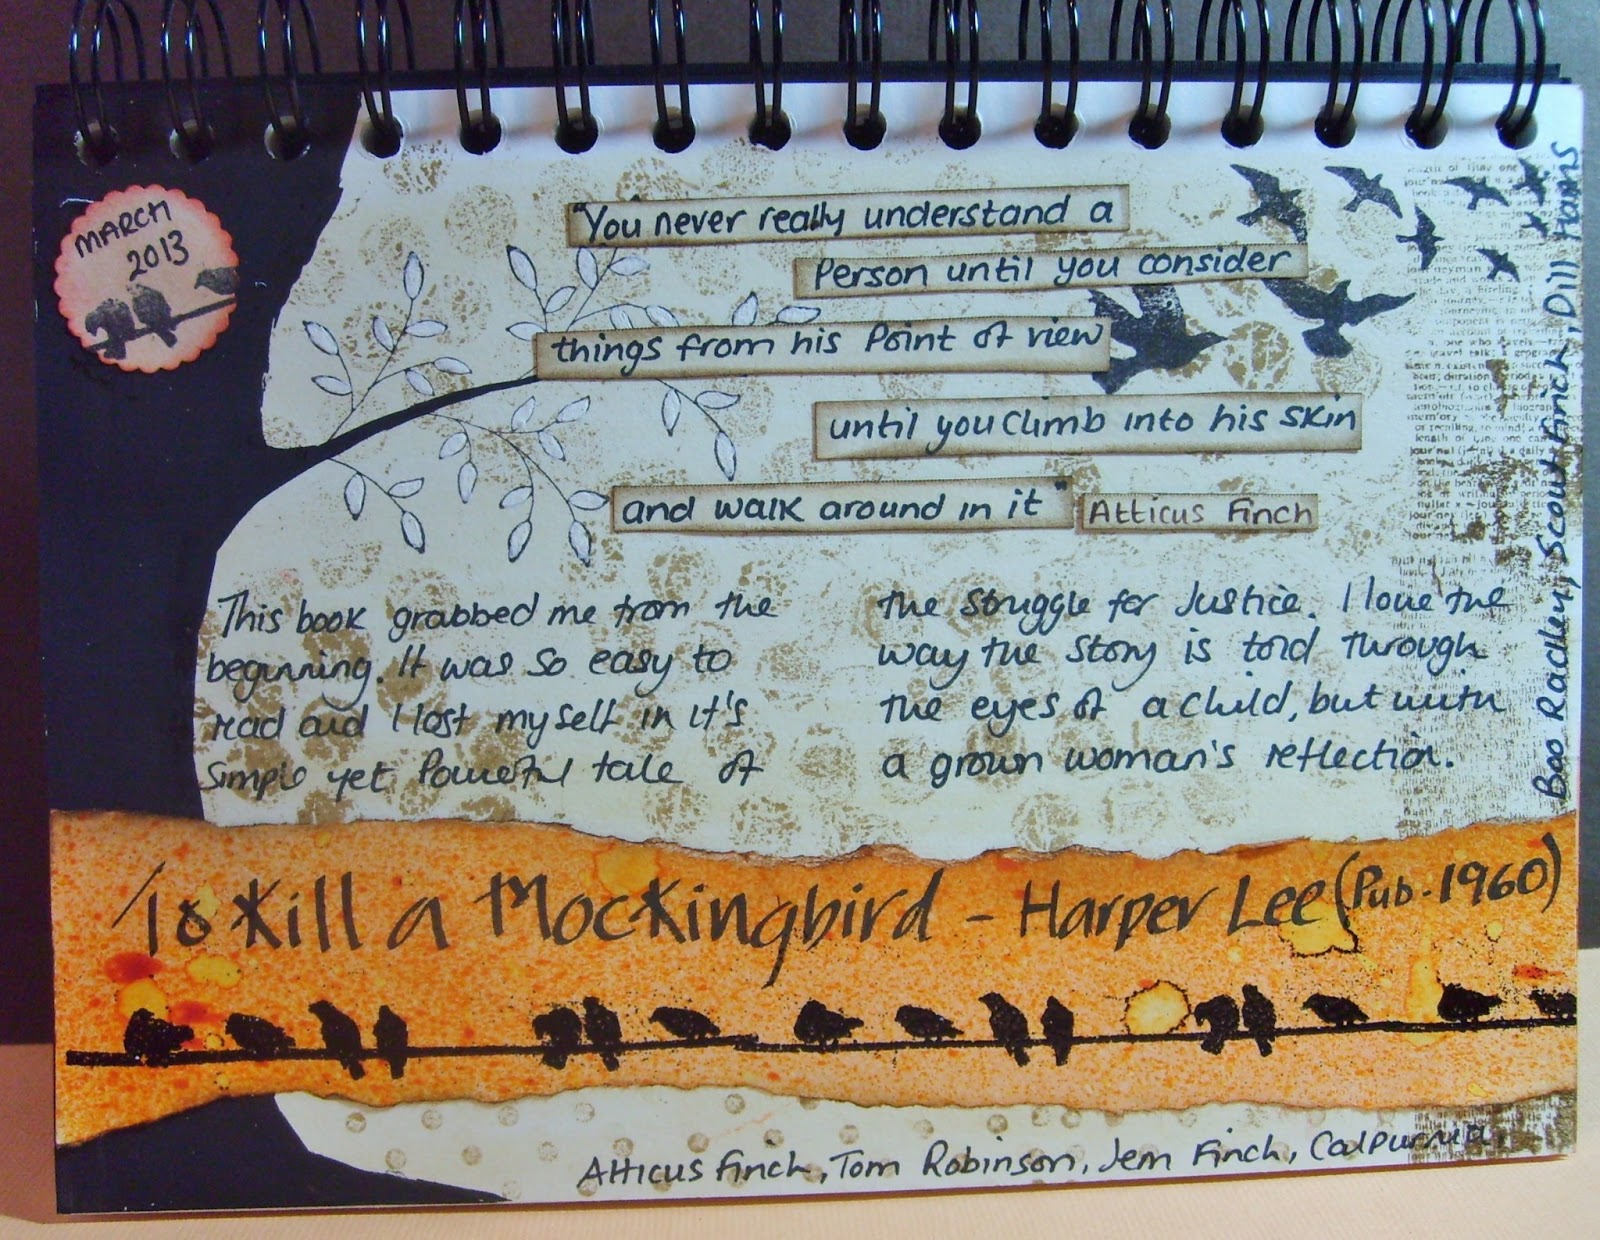 MARCH
2013
"You never really understand a
Person until you consider
things from his Point of view
until you climb into his skin
and walk around in it"
Atticus Finch
This book grabbed me from the
beginning. It was so easy to
read and I lost myself in it's
simple yet Powerful tale of
the struggle for Justice. I love the
way the story is told through
the eyes of a child, but with
a grown woman's reflection.
Boo Radley, Scout Finch, Dill Harris
To Kill a Mockingbird - Harper Lee (Pub. 1960)
Atticus Finch, Tom Robinson, Jem Finch, Calpurnia